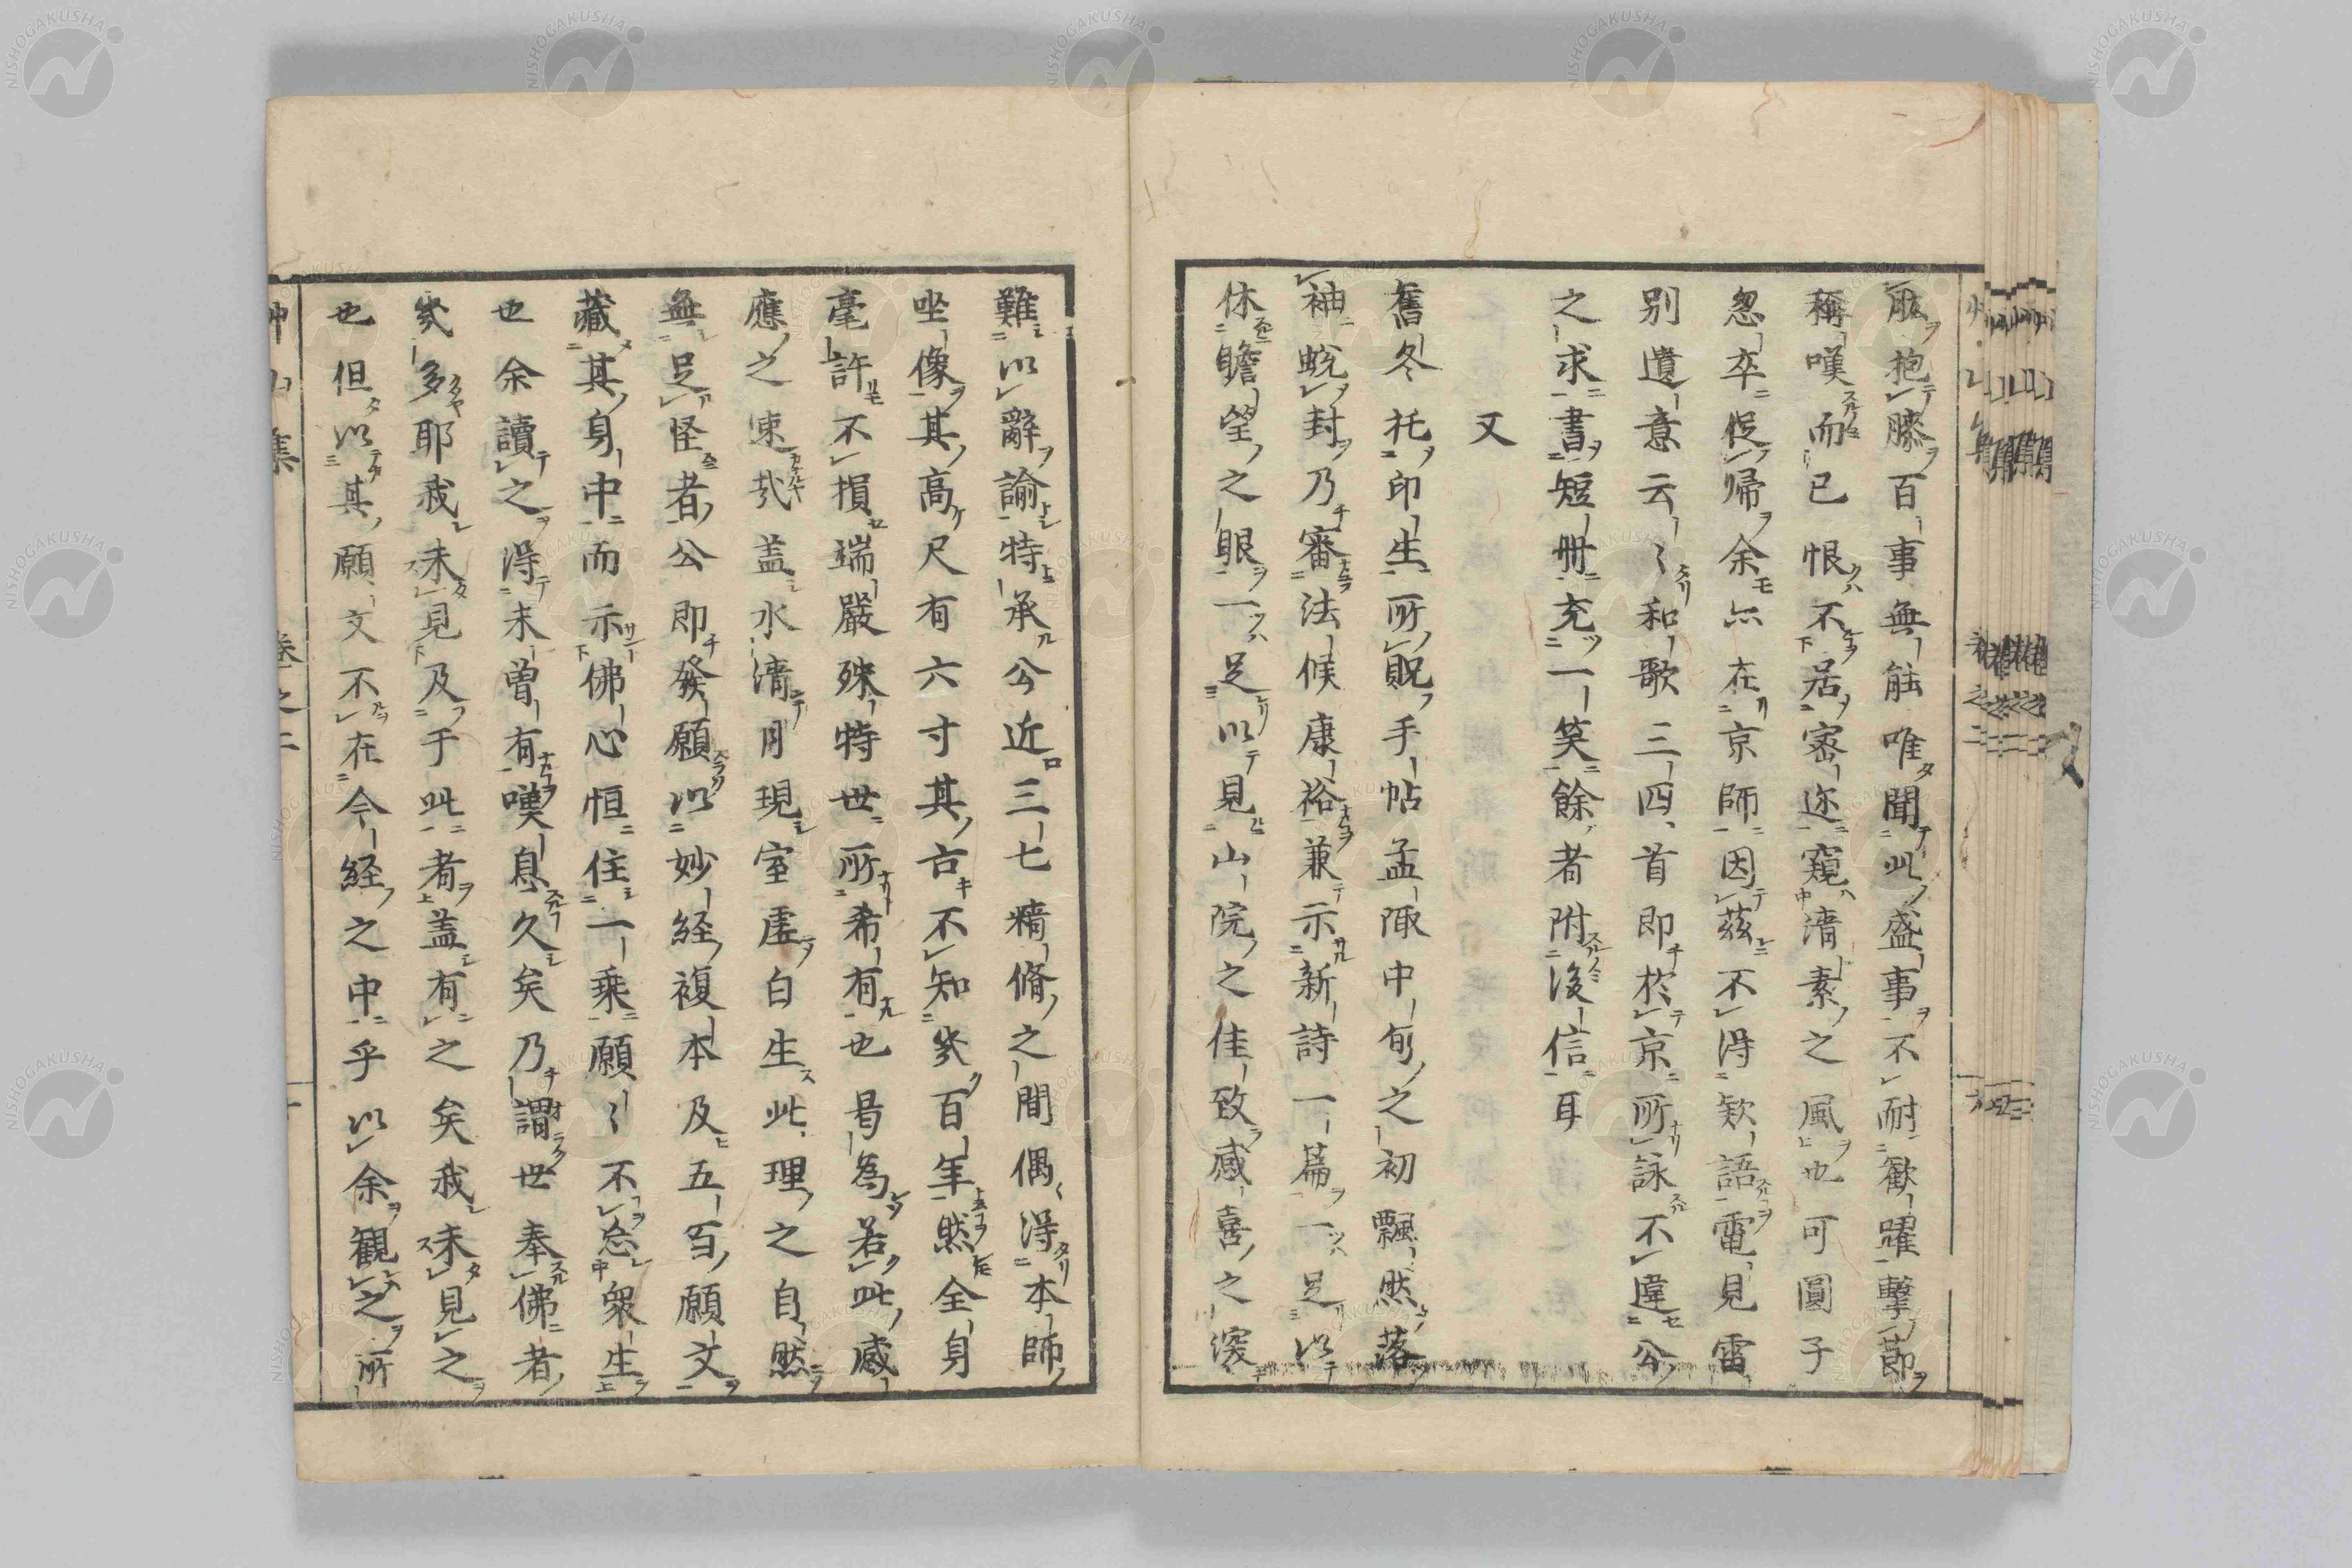 肱抱膝百事無能唯聞此盛事不耐歡躍擊節
稱嘆而已恨不居密迩窺清素之風也可圓子
忽卒促歸余亦在京師因茲不得欵語電見雷
別遺意云〻和歌三四首即於京所詠不違公
之求書短冊充一笑餘者附後信耳
又
舊冬托印生所貺手帖孟陬中旬之初飄然落
袖蛻封乃審法候康裕兼示新詩一篇一足以
休瞻望之眼一足以見山院之佳致感喜之深
難以辭諭特承公近三七精脩之間偶得本師
坐像其高尺有六寸其古不知幾百年然全身
毫許不損端嚴殊特世所希有也曷為若此感
應之速哉盖水清月現室虛白生此理之自然
無足怪者公即發願以妙経複本及五百願文
藏其身中而示佛心恒住一乘願〻不忘衆生
也余讀之得未曽有嘆息久矣乃謂世奉佛者
幾多耶我未見及于此者盖有之矣我未見之
也但以其願文不在今経之中乎以余観之所
卷之二
NISHOGAKUSHA